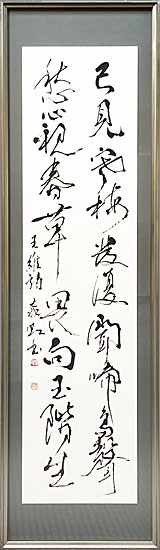 已見寒梅發復聞啼鳥聲
愁心視春草畏向玉階生
王維詩 虹書